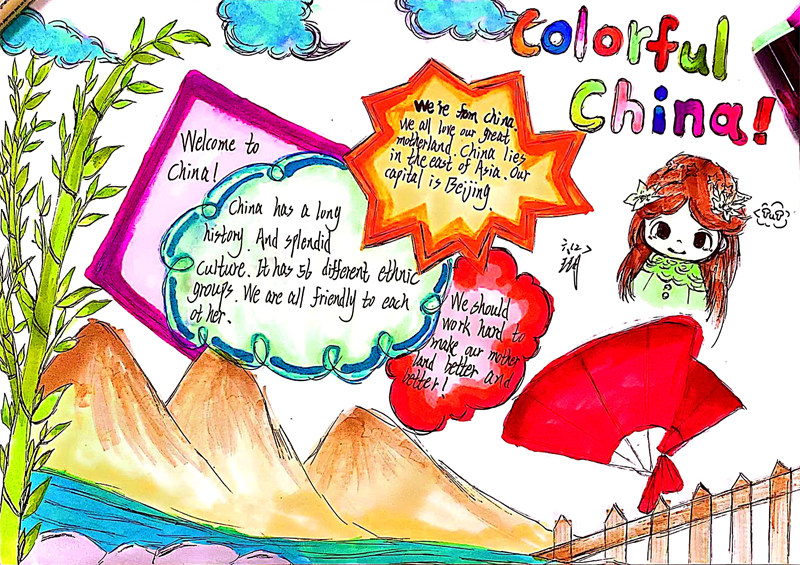 Colorful
China!
Welcome to
China!
We're from China.
We all love our great
motherland. China lies
in the east of Asia. Our
capital is Beijing.
China has a long
history. And splendid
culture. It has 56 different ethnic
groups. We are all friendly to each
other.
We should
work hard to
make our mother
land better and
better!